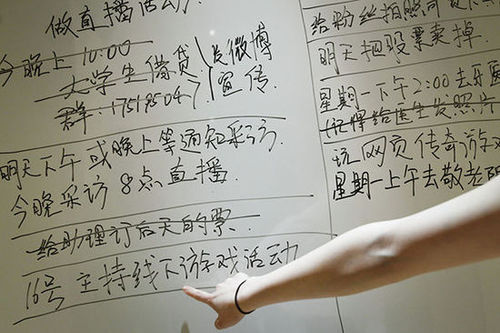 做直播活动
今晚上10:00
大学生借贷
群:175185047
发微博
宣传
明天下午或晚上等通知采访
今晚采访8点直播
给助理订后天的票
16号主持线下游戏活动
给粉丝拍照
明天把股票卖掉
星期一下午2:00去牙医
(记得给医生发照片
玩网页传奇游
星期一上午去敬老院